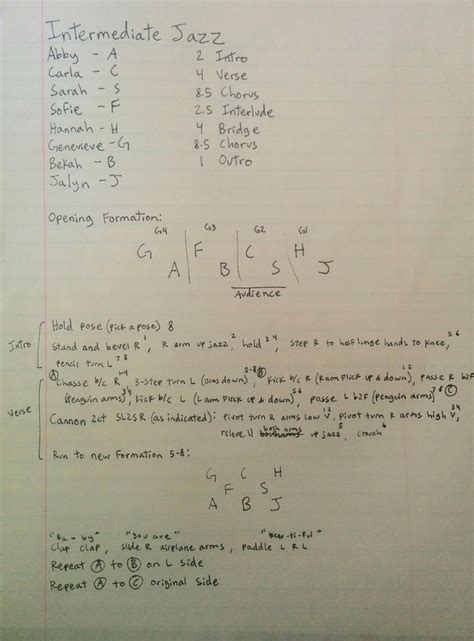 Intermediate Jazz
Abby - A    2 Intro
Carla - C    4 Verse
Sarah - S    8.5 Chorus
Sofie - F    2.5 Interlude
Hannah - H    4 Bridge
Genevieve - G    8.5 Chorus
Bekah - B    1 Outro
Jalyn - J
Opening Formation:
G4 G3 G2 G1
G F C H
A B S J
Audience
Intro
Hold pose (pick a pose) 8
Stand and bevel R 1, R arm up jazz 2, hold 3 4, step R to half lunge hands to knee, 5 6
pencil turn L 7 8
Verse
Ⓐ Chasse b/c R 1-4, 3-step turn L (arms down) 5-8 Ⓑ, Kick b/c R (R arm flick up & down) 1 2, passe R
(penguin arms) 3 4, kick b/c L (L arm flick up & down) 5 6, passe L (penguin arms) 7 8 Ⓒ
Cannon 2ct SL2SR (as indicated): pivot turn R arms low V 1 2, pivot turn R arms high V 3 4,
releve // both arms up jazz 5, crouch 6
Run to new Formation 5-8:
G C H
F S
A B J
"Ba - by" "you are" "beau-ti-ful"
Clap clap, slide R airplane arms, paddle L R L
Repeat Ⓐ to Ⓑ on L side
Repeat Ⓐ to Ⓒ original side